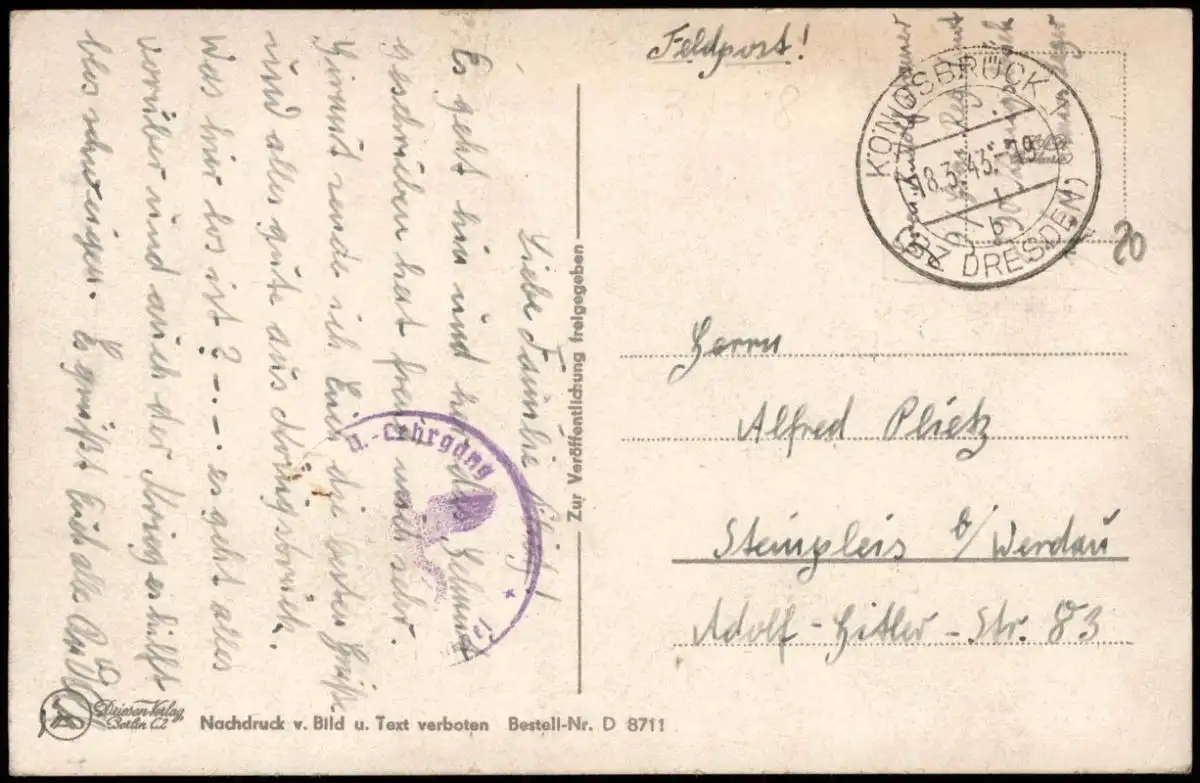 Feldpost!
KÖNIGSBRÜCK
18.3.43.-19
b
(BZ DRESDEN)
20
Liebe Familie
Es geht hin und her das Hellmut
geschrieben hat freut mich sehr.
Hiermit sende ich Euch die ersten Grüße
und alles gute aus Königsbrück.
Was hier los ist? - - - es geht alles
vorüber und auch der Krieg es hilft
blos schweigen. Es grüßt Euch alle
u.-Lehrgang
Zur Veröffentlichung freigegeben
Herrn
Alfred Plietz
Steinpleis b/Werdau
Adolf-Hitler-Str. 83
Driesen-Verlag
Berlin C2
Nachdruck v. Bild u. Text verboten Bestell-Nr. D 8711